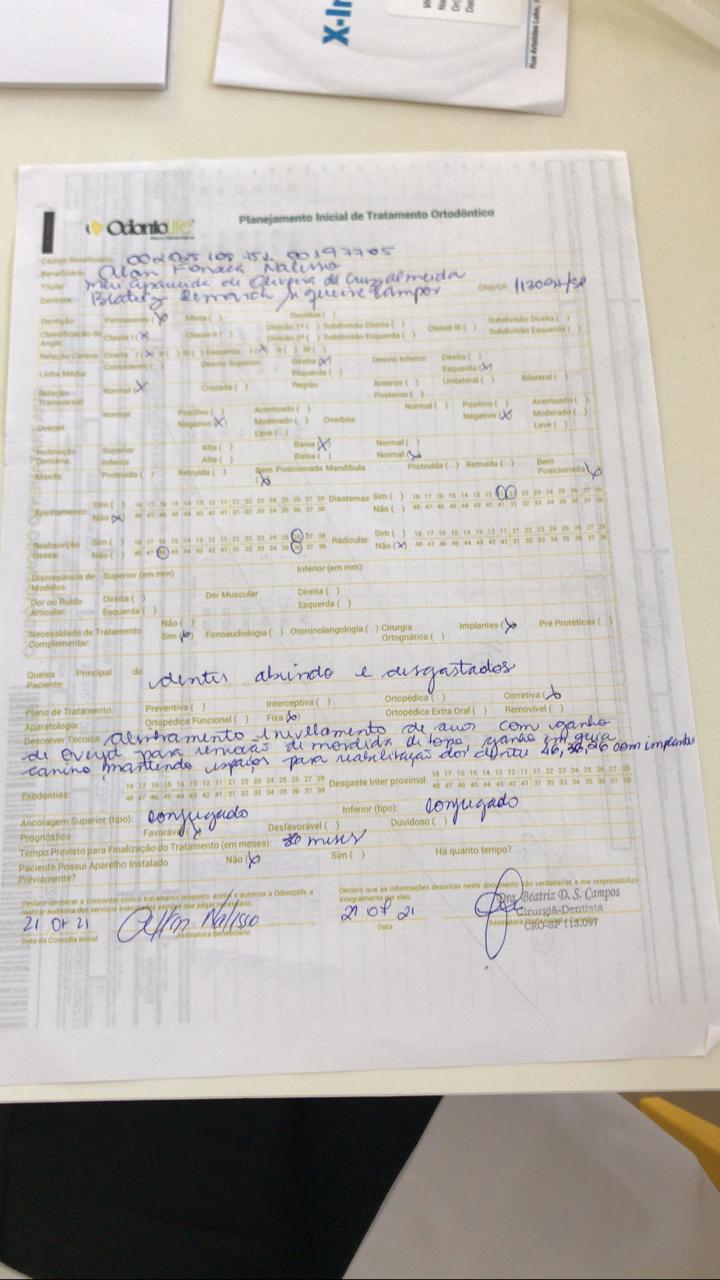 X-In
Rua Aristides Lobo,
OdontoLife
Planejamento Inicial de Tratamento Ortodôntico
Código Beneficiário:
Beneficiário: Alan Fonseca Nalisso
Titular: Aparecida de Oliveira da Cruz Almeida
Dentista: CRO/UF:
Dentição: Permanente (x) Mista ( ) Decídua ( )
Classificação de Angle Classe I (x) Classe II ( ) Divisão 1ª ( ) Subdivisão Direita ( ) Classe III ( ) Subdivisão Direita ( )
Divisão 2ª ( ) Subdivisão Esquerda ( ) Subdivisão Esquerda ( )
Relação Canina: Direita I (x) II ( ) III ( ) Esquerda I (x) II ( ) III ( )
Linha Média: Coincidente ( ) Desvio Superior: Direita (x) Desvio Inferior: Direita ( )
Esquerda ( ) Esquerda (x)
Relação Transversal: Normal (x) Cruzada ( ) Região Anterior ( ) Unilateral ( ) Bilateral ( )
Posterior ( )
Overjet: Normal Positivo ( ) Acentuado ( ) Overbite: Normal ( ) Positivo ( ) Acentuado ( )
Negativo (x) Moderado ( ) Negativo (x) Moderado ( )
Leve ( ) Leve ( )
Inclinação Dentária: Superior Alta ( ) Baixa (x) Normal ( )
Inferior Alta ( ) Baixa ( ) Normal (x)
Maxila: Protruída ( ) Retruída ( ) Bem Posicionada (x) Mandíbula Protruída ( ) Retruída ( ) Bem Posicionada (x)
Apinhamento Sim ( ) 18 17 16 15 14 13 12 11 21 22 23 24 25 26 27 28 Diastemas Sim ( ) 18 17 16 15 14 13 12 11 21 22 23 24 25 26 27 28
Não (x) 48 47 46 45 44 43 42 41 31 32 33 34 35 36 37 38 Não ( ) 48 47 46 45 44 43 42 41 31 32 33 34 35 36 37 38
Reabsorção Óssea: Sim ( ) 18 17 16 15 14 13 12 11 21 22 23 24 25 26 27 28 Radicular: Sim ( ) 18 17 16 15 14 13 12 11 21 22 23 24 25 26 27 28
Não ( ) 48 47 46 45 44 43 42 41 31 32 33 34 35 36 37 38 Não (x) 48 47 46 45 44 43 42 41 31 32 33 34 35 36 37 38
Discrepância de Modelos: Superior (em mm) Inferior (em mm):
Dor ou Ruído Articular: Direita ( ) Dor Muscular Direita ( )
Esquerda ( ) Esquerda ( )
Necessidade de Tratamento Complementar: Não ( )
Sim (x) Fonoaudiologia ( ) Otorrinolangologia ( ) Cirurgia Ortognática ( ) Implantes (x) Pré Protéticas ( )
Queixa Principal do Paciente: dentes abrindo e desgastados
Plano de Tratamento: Preventiva ( ) Interceptiva ( ) Ortopédica ( ) Corretiva (x)
Aparatologia: Ortopédica Funcional ( ) Fixa (x) Ortopédica Extra Oral ( ) Removível ( )
Descrever Técnica: alinhamento e nivelamento de arcos com ganho
de overjet para remoção de mordida de topo, ganho em guia
canino, mantendo espaços para reabilitação dos dentes 46, 36, 26 com implantes
Exodontias: 18 17 16 15 14 13 12 11 21 22 23 24 25 26 27 28 Desgaste Inter proximal: 18 17 16 15 14 13 12 11 21 22 23 24 25 26 27 28
48 47 46 45 44 43 42 41 31 32 33 34 35 36 37 38 48 47 46 45 44 43 42 41 31 32 33 34 35 36 37 38
Ancoragem Superior (tipo): conjugado Inferior (tipo): conjugado
Prognóstico Favorável (x) Desfavorável ( ) Duvidoso ( )
Tempo Previsto para Finalização do Tratamento (em meses): meses
Paciente Possui Aparelho Instalado Previamente? Não (x) Sim ( ) Há quanto tempo?
Declaro conhecer e concordar com o tratamento proposto acima e autorizo a Odontolife a
realizar auditoria dos serviços
Declaro que as informações descritas neste documento são verdadeiras e me responsabilizo
integralmente por elas.
21 07 21 Alan Nalisso 21 07 21
Data da Consulta Inicial Assinatura Beneficiário Data
Dra. Beatriz D. S. Campos
Cirurgiã-Dentista
CRO-SP 113.097